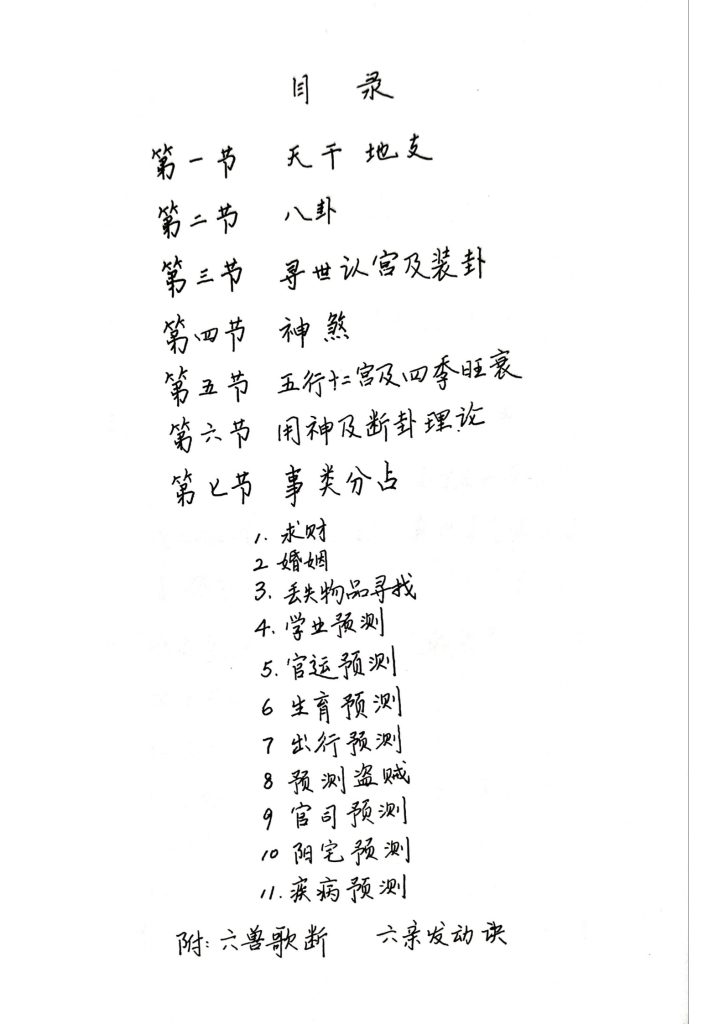 目 录
第一节 天干地支
第二节 八卦
第三节 寻世认宫及装卦
第四节 神煞
第五节 五行十二宫及四季旺衰
第六节 用神及断卦理论
第七节 事类分占
1. 求财
2 婚姻
3. 丢失物品寻找
4. 学业预测
5. 官运预测
6 生育预测
7 出行预测
8 预测盗贼
9 官司预测
10 阳宅预测
11. 疾病预测
附:六兽歌断 六亲发动诀